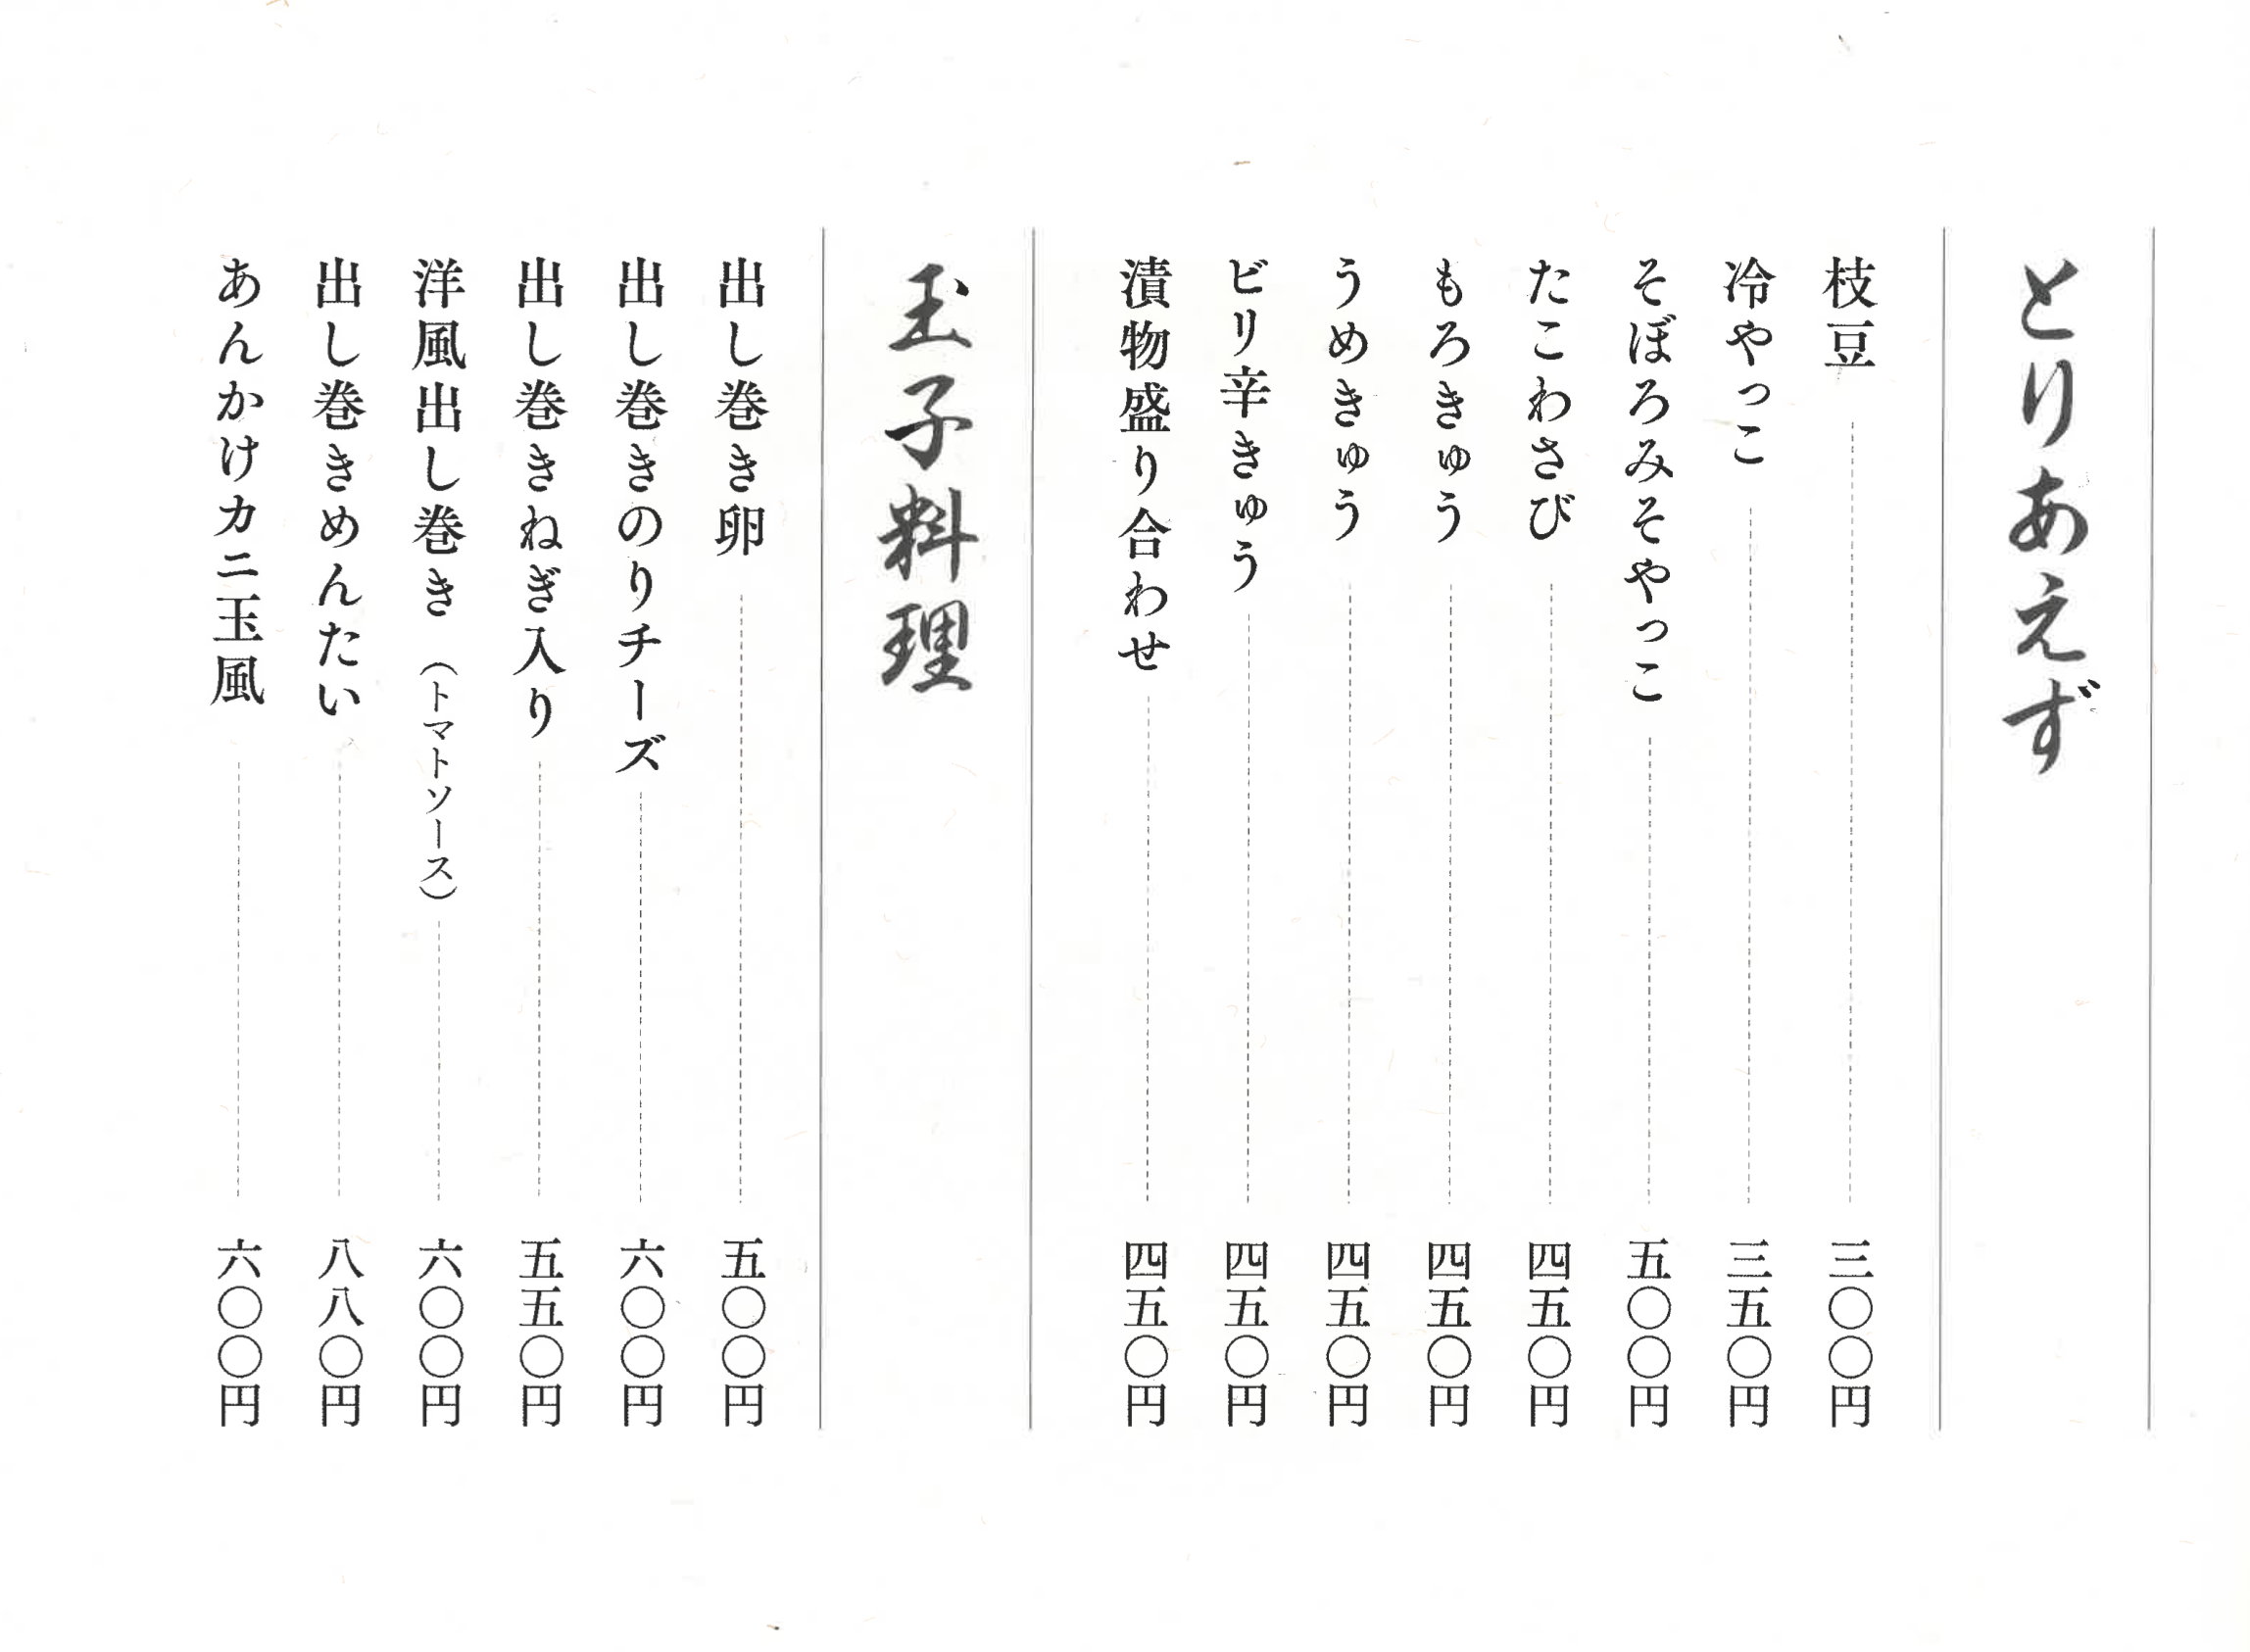 とりあえず
枝豆 三〇〇円
冷やっこ 三五〇円
そぼろみそやっこ 五〇〇円
たこわさび 四五〇円
もろきゅう 四五〇円
うめきゅう 四五〇円
ピリ辛きゅう 四五〇円
漬物盛り合わせ 四五〇円
玉子料理
出し巻き卵 五〇〇円
出し巻きのりチーズ 六〇〇円
出し巻きねぎ入り 五五〇円
洋風出し巻き（トマトソース） 六〇〇円
出し巻きめんたい 八八〇円
あんかけカニ玉風 六〇〇円